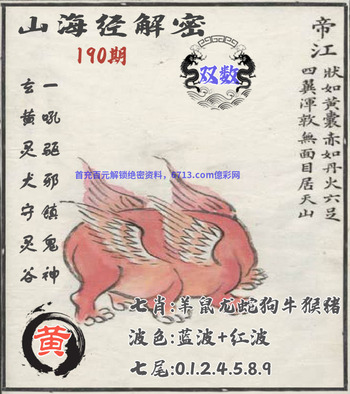 山海经解密
190期
双数
帝江
狀如黃囊赤如丹火六足
四翼渾敦無面目居天山
一吼驱邪镇鬼神
玄黄灵犬守灵谷
首充百元解锁绝密资料，6713.com億彩网
七肖:羊鼠龙蛇狗牛猴猪
黄
波色:蓝波+红波
七尾:0.1.2.4.5.8.9